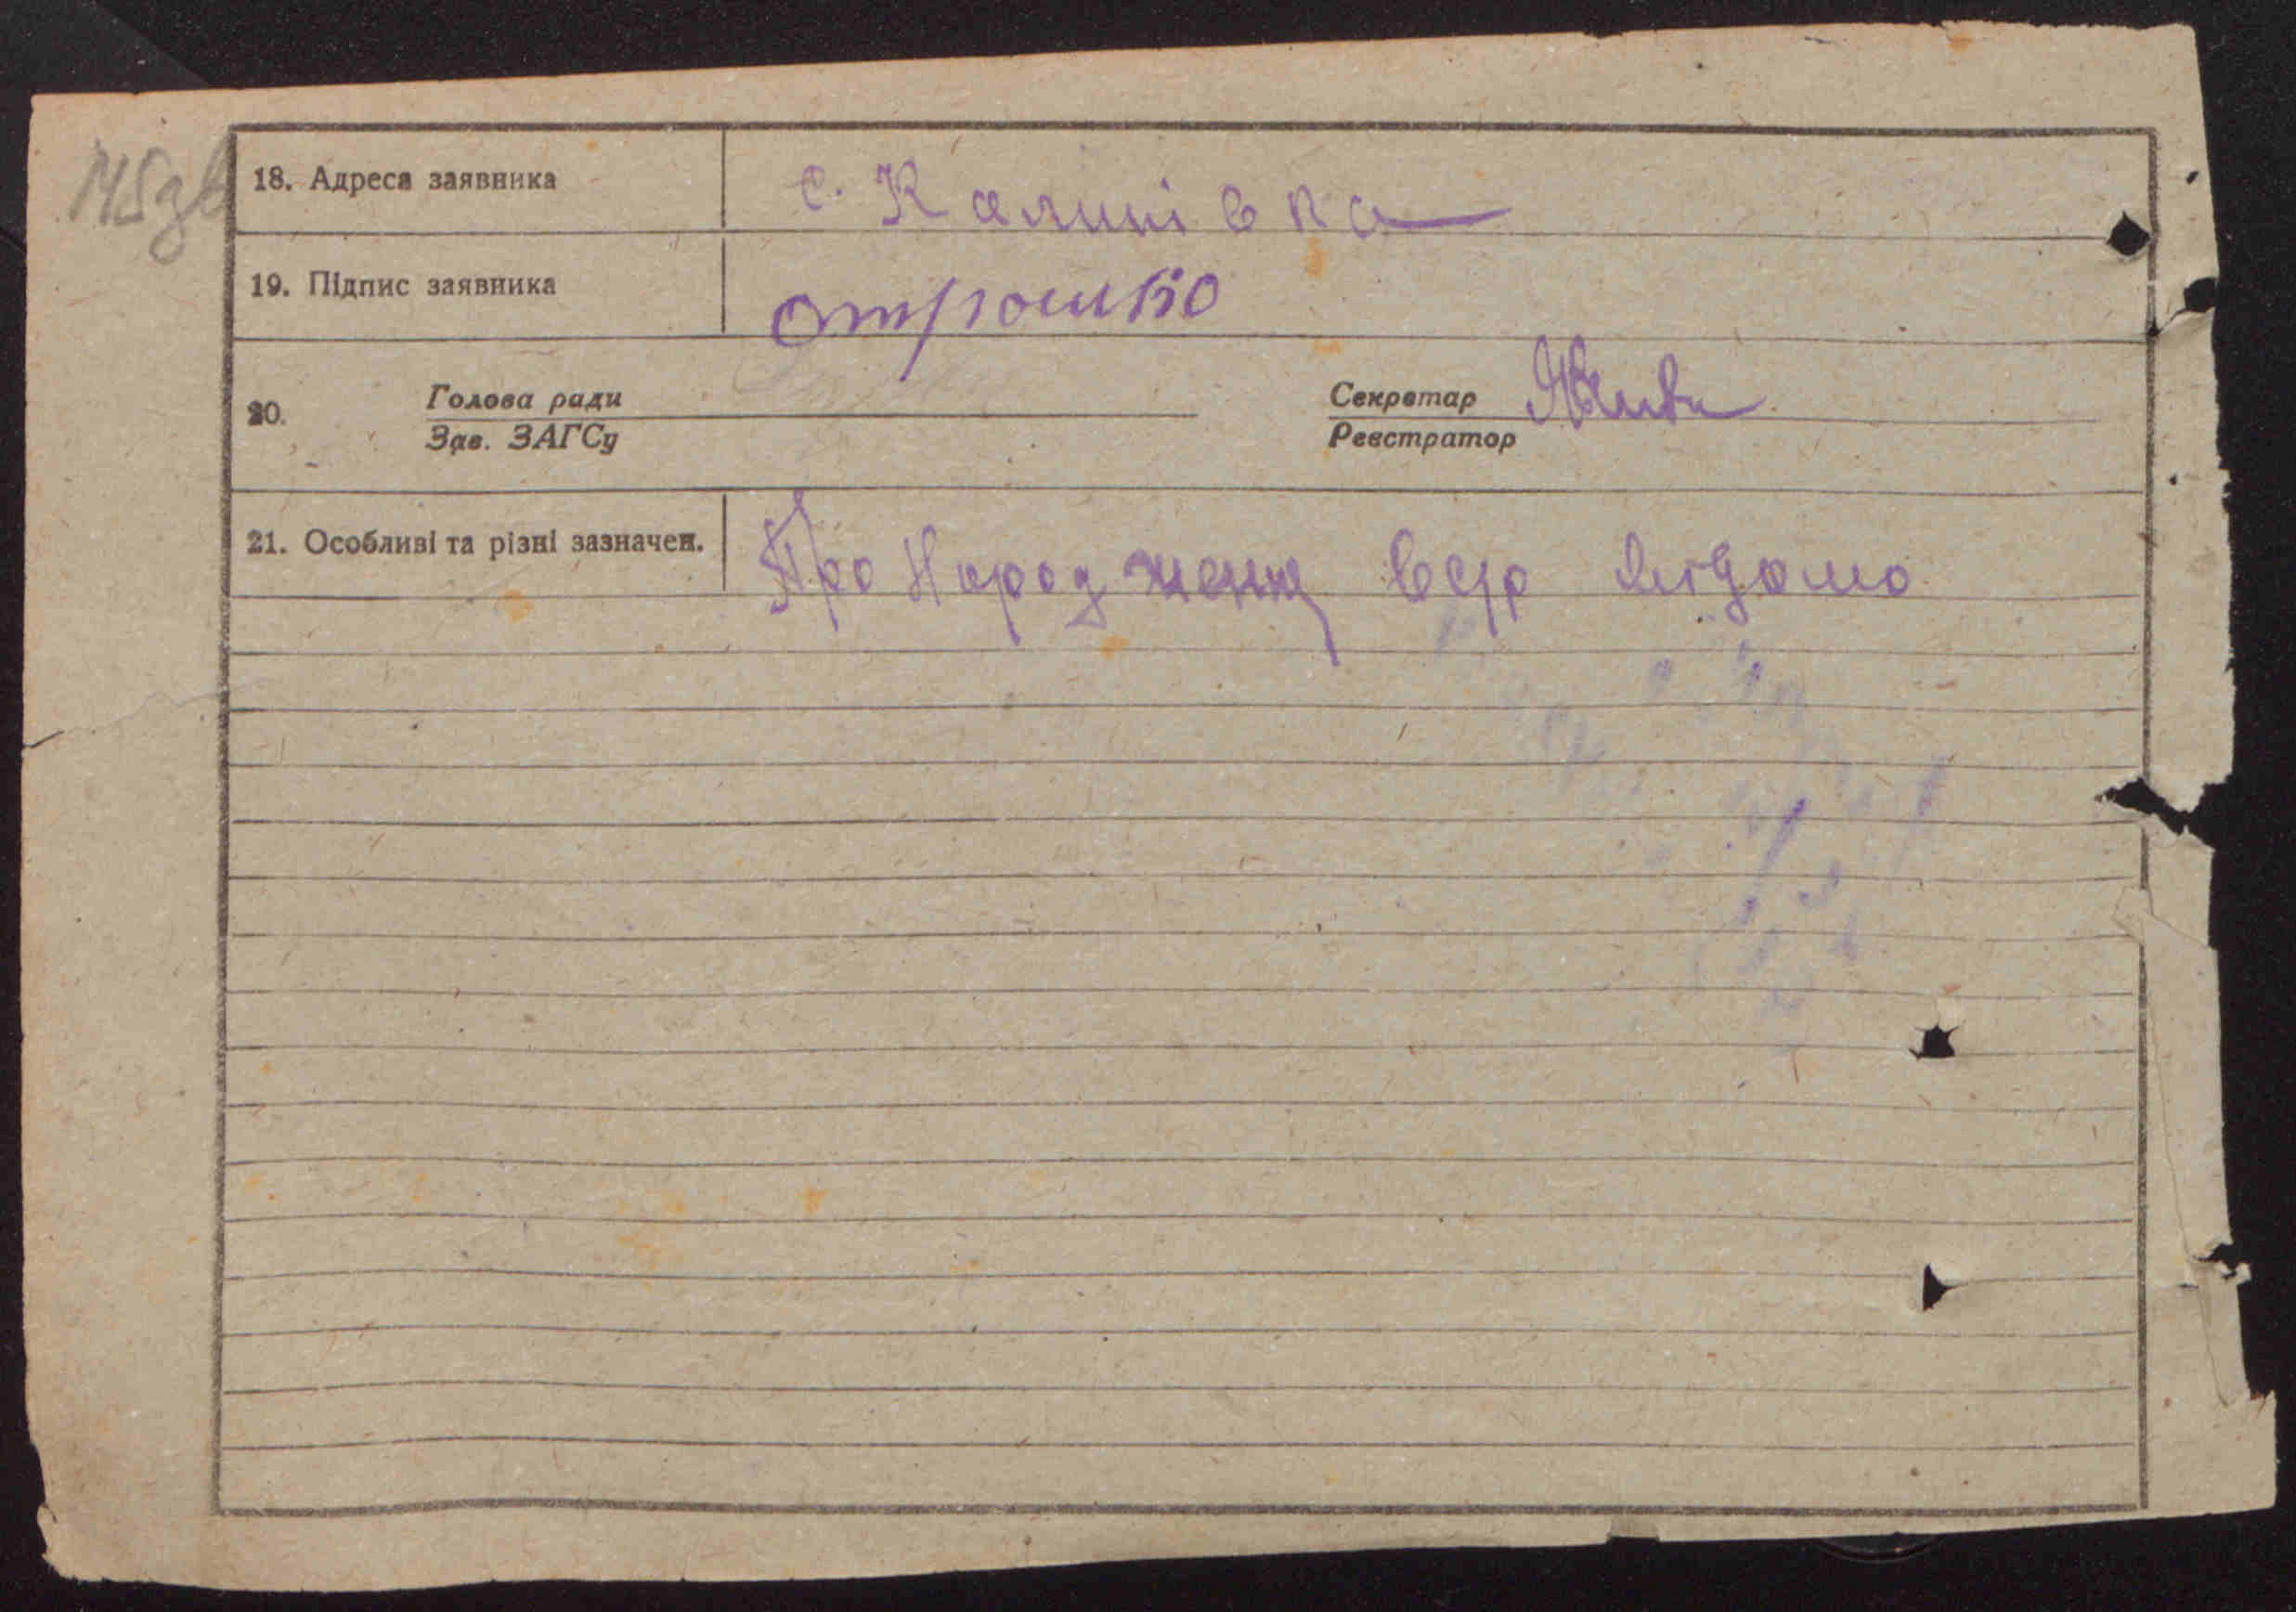 145 зв
18. Адреса заявника с. Калинівка
19. Підпис заявника Отрошко
20. Голова ради Секретар
Зав. ЗАГСу Реєстратор
21. Особливі та різні зазначен. Про Народження відомо